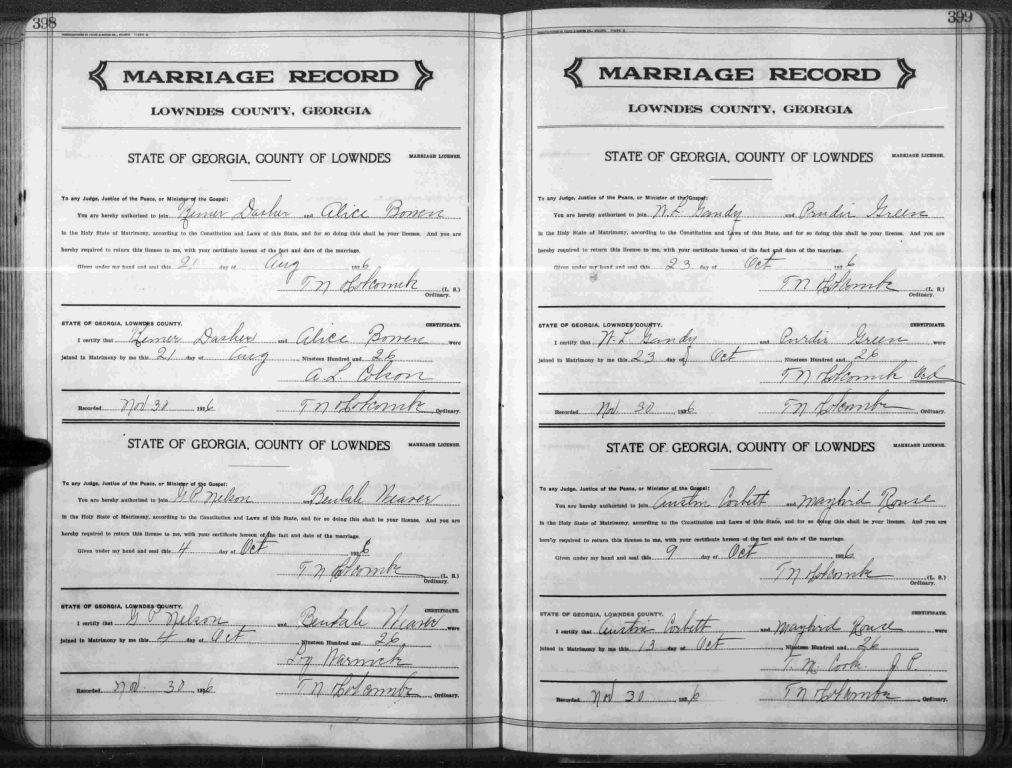 398
MARRIAGE RECORD
LOWNDES COUNTY, GEORGIA
STATE OF GEORGIA, COUNTY OF LOWNDES MARRIAGE LICENSE.
To any Judge, Justice of the Peace, or Minister of the Gospel:
You are hereby authorized to join Remer Dasher and Alice Bowen
in the Holy State of Matrimony, according to the Constitution and Laws of this State, and for so doing this shall be your license. And you are
hereby required to return this license to me, with your certificate hereon of the fact and date of the marriage.
Given under my hand and seal this 21 day of Aug 1926
T N Holcomb (L. S.)
Ordinary.
STATE OF GEORGIA, LOWNDES COUNTY. CERTIFICATE.
I certify that Remer Dasher and Alice Bowen were
joined in Matrimony by me this 21 day of Aug Nineteen Hundred and 26
A. L. Colson
Recorded Nov 30 1926 T N Holcomb Ordinary.
STATE OF GEORGIA, COUNTY OF LOWNDES MARRIAGE LICENSE.
To any Judge, Justice of the Peace, or Minister of the Gospel:
You are hereby authorized to join G P Nelson Beulah Weaver
in the Holy State of Matrimony, according to the Constitution and Laws of this State, and for so doing this shall be your license. And you are
hereby required to return this license to me, with your certificate hereon of the fact and date of the marriage.
Given under my hand and seal this 4 day of Oct 1926
T N Holcomb (L. S.)
Ordinary.
STATE OF GEORGIA, LOWNDES COUNTY. CERTIFICATE.
I certify that G P Nelson and Beulah Weaver were
joined in Matrimony by me this 4 day of Oct, Nineteen Hundred and 26
Warnick
Recorded Nov 30 1926 T N Holcomb Ordinary.
399
MARRIAGE RECORD
LOWNDES COUNTY, GEORGIA
STATE OF GEORGIA, COUNTY OF LOWNDES MARRIAGE LICENSE.
To any Judge, Justice of the Peace, or Minister of the Gospel:
You are hereby authorized to join N. L Gandy and Purdie Green
in the Holy State of Matrimony, according to the Constitution and Laws of this State, and for so doing this shall be your license. And you are
hereby required to return this license to me, with your certificate hereon of the fact and date of the marriage.
Given under my hand and seal this 23 day of Oct 1926
T N Holcomb (L. S.)
Ordinary.
STATE OF GEORGIA, LOWNDES COUNTY. CERTIFICATE.
I certify that N. L Gandy and Purdie Green were
joined in Matrimony by me this 23 day of Oct, Nineteen Hundred and 26
T N Holcomb Ord
Recorded Nov 30 1926 T N Holcomb Ordinary.
STATE OF GEORGIA, COUNTY OF LOWNDES MARRIAGE LICENSE.
To any Judge, Justice of the Peace, or Minister of the Gospel:
You are hereby authorized to join Austin Corbitt and Maybird Rouse
in the Holy State of Matrimony, according to the Constitution and Laws of this State, and for so doing this shall be your license. And you are
hereby required to return this license to me, with your certificate hereon of the fact and date of the marriage.
Given under my hand and seal this 9 day of Oct 1926
T N Holcomb (L. S.)
Ordinary.
STATE OF GEORGIA, LOWNDES COUNTY. CERTIFICATE.
I certify that Austin Corbitt and Maybird Rouse were
joined in Matrimony by me this 13 day of Oct, Nineteen Hundred and 26
T. M. Cook J P
Recorded Nov 30 1926 T N Holcomb Ordinary.